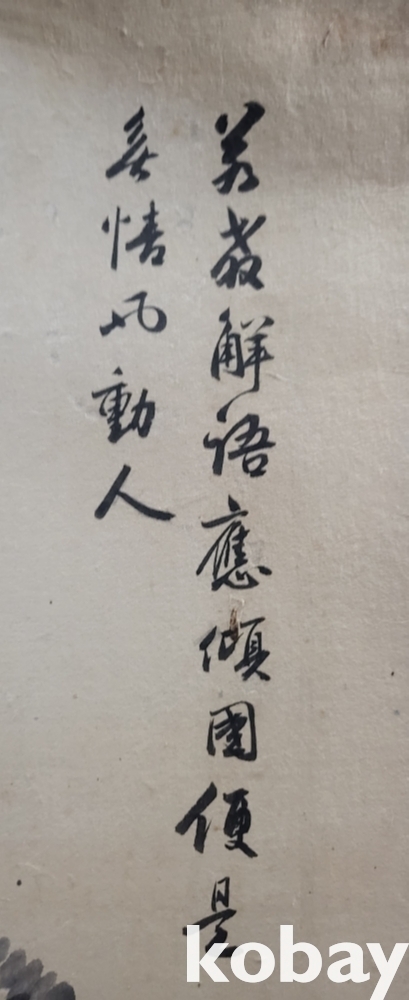 若教解語應傾國便是
無情也動人
kobay